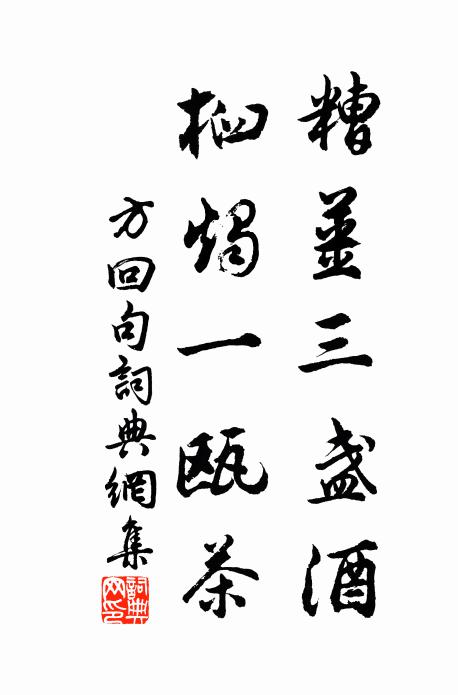 糟薑三盞酒
桕燭一甌茶
方回句詞典網集
詞典
网印